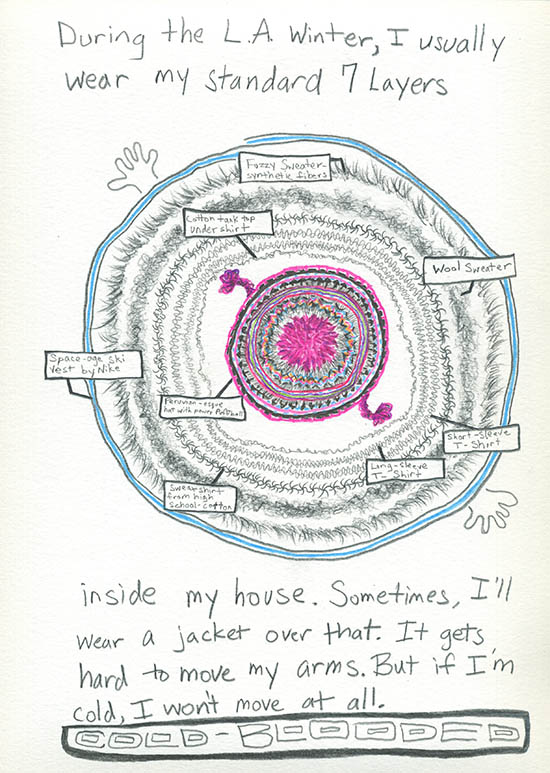 During the L.A. Winter, I usually
wear my standard 7 Layers
Fuzzy Sweater-
synthetic fibers
Cotton tank top
undershirt
Wool Sweater
Space-age ski
vest by Nike
Peruvian-esque
hat with power Puffball
Short-Sleeve
T-Shirt
Long-Sleeve
T-Shirt
Swearshirt
from high
school-cotton
inside my house. Sometimes, I'll
wear a jacket over that. It gets
hard to move my arms. But if I'm
cold, I won't move at all.
COLD-BLOODED